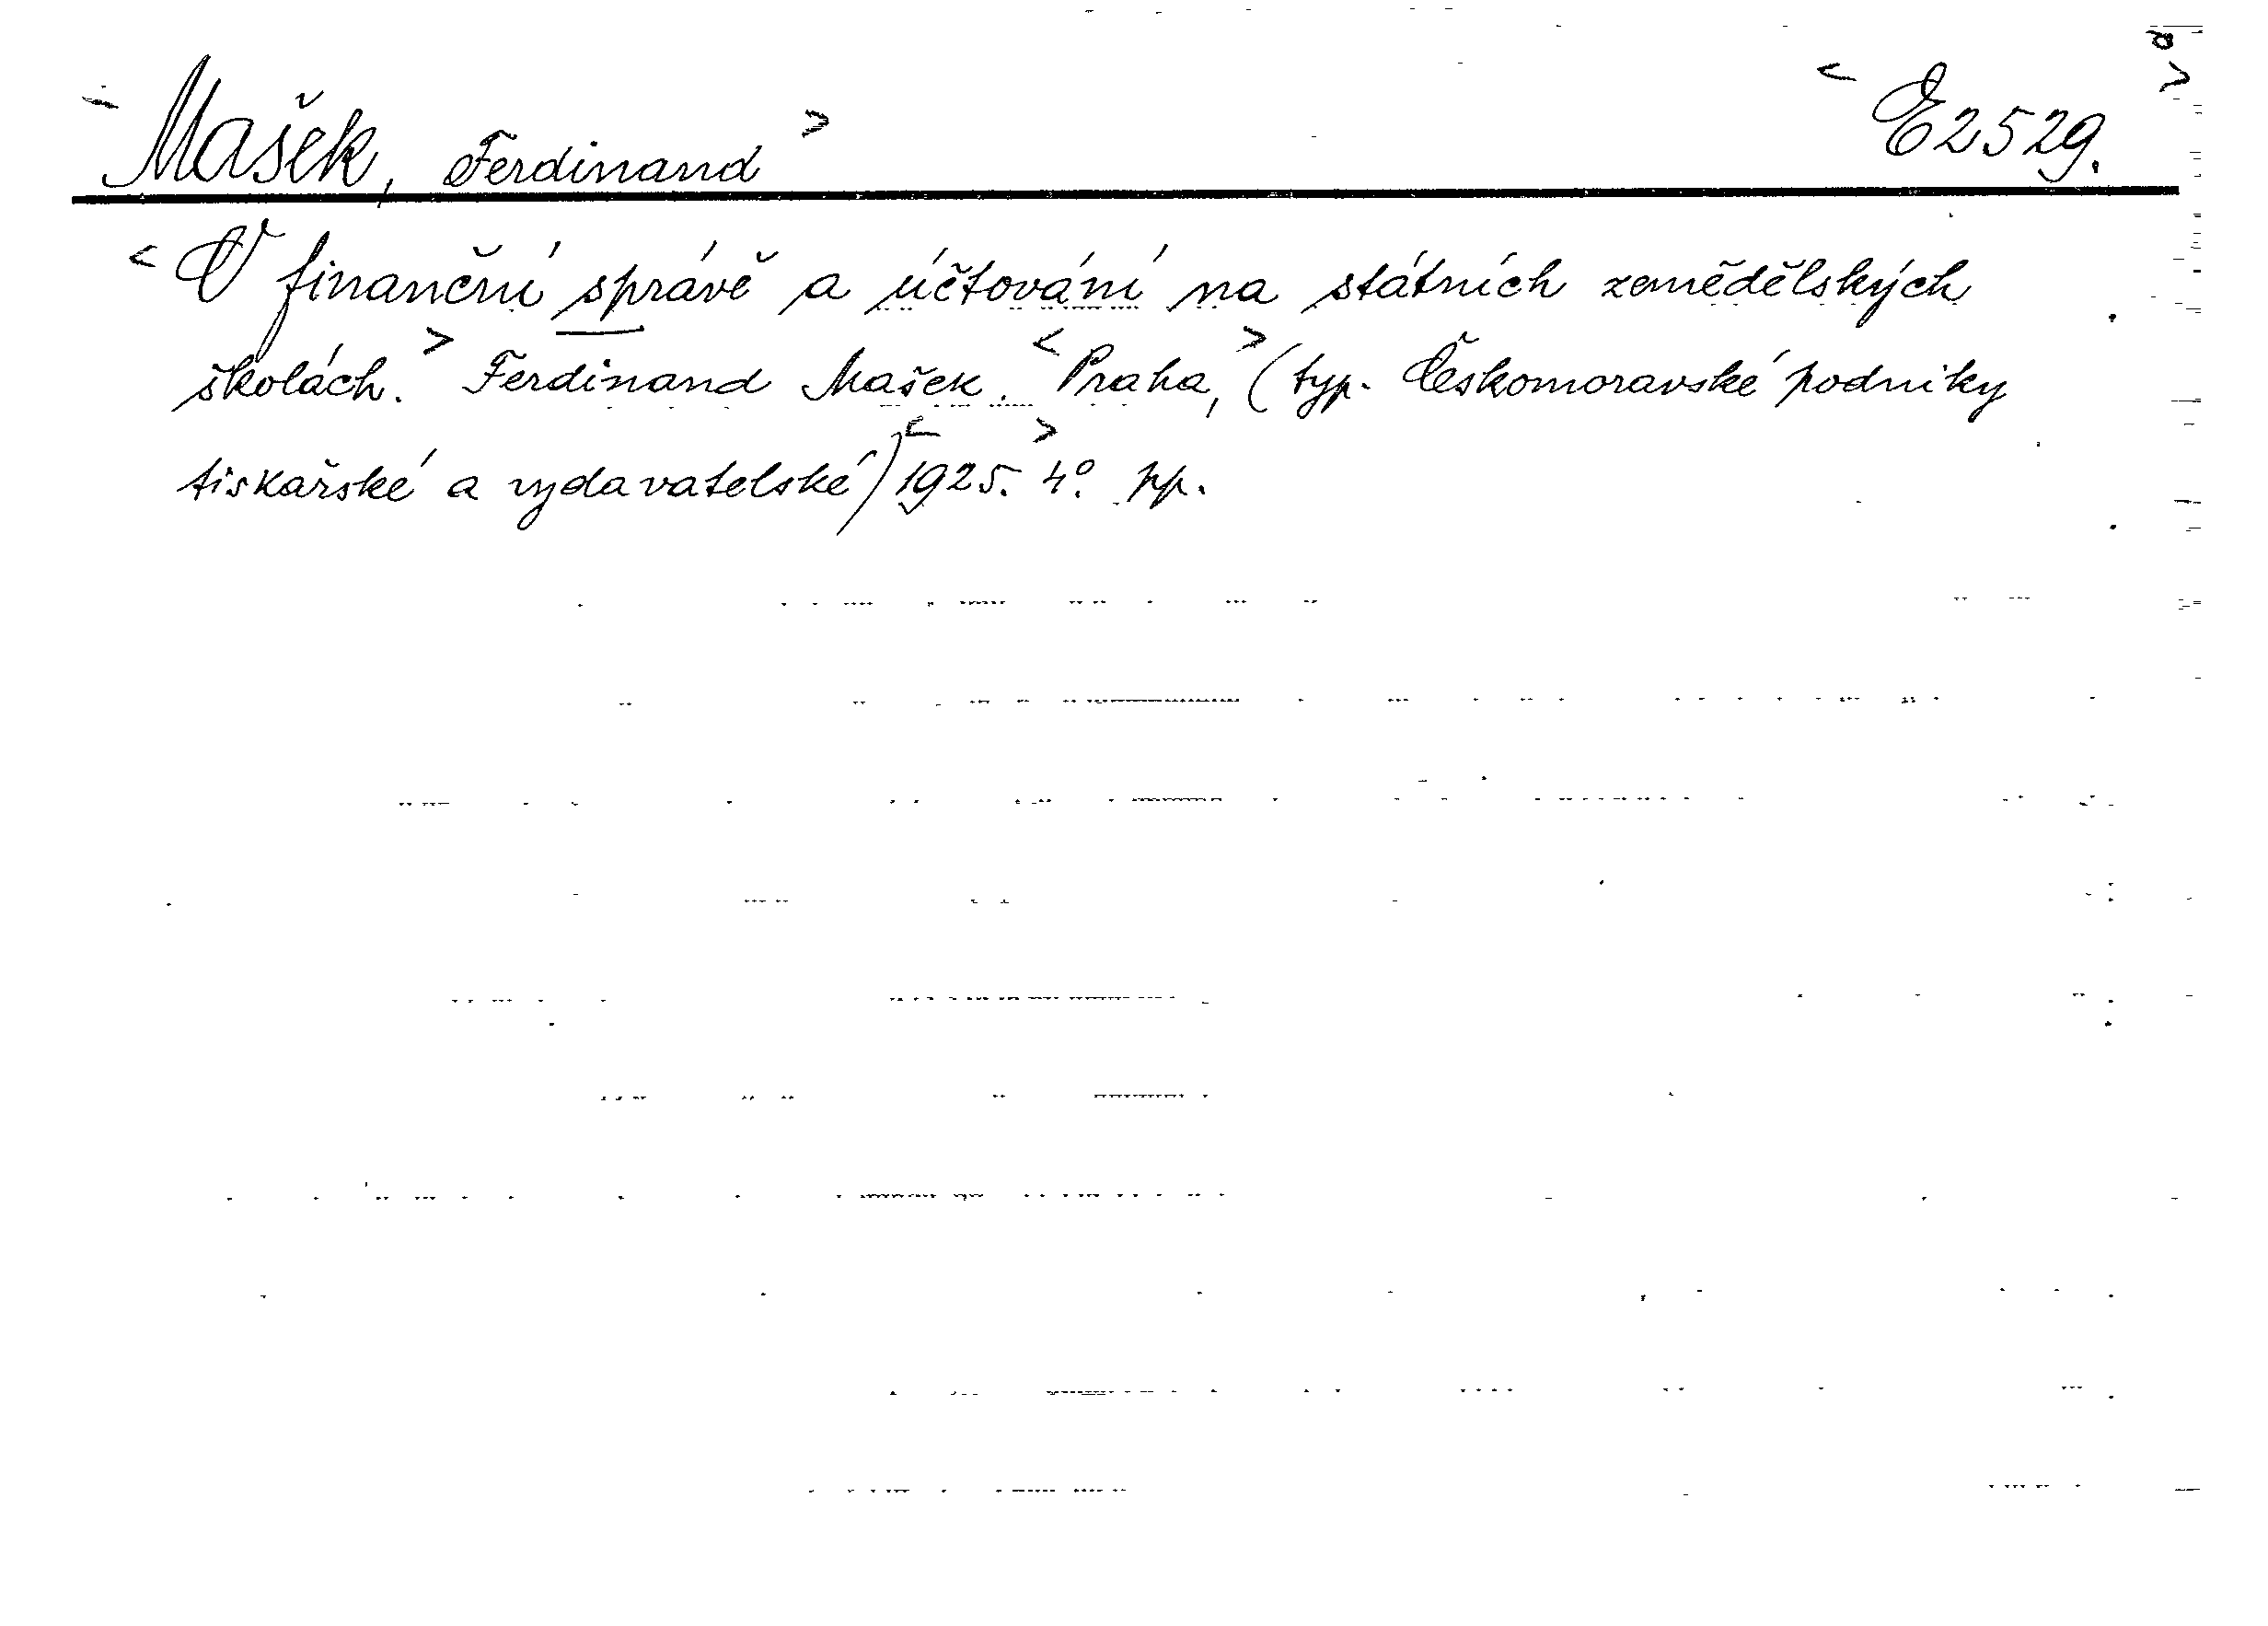 <Mašek, Ferdinand> <E2529.>
<O finanční správě a účtování na státních zemědělských
školách.> Ferdinand Mašek. <Praha,> (typ. Českomoravské podniky
tiskařské a vydavatelské) <1925.> 4°. pp.